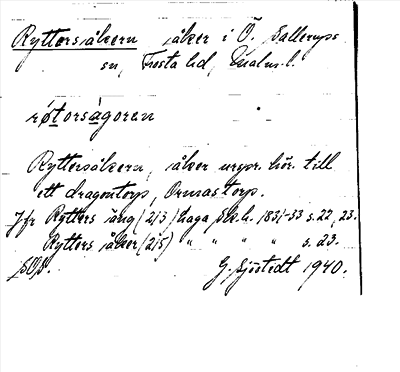 Ryttersåkern åker i Ö. Sallerups
sn, Frosta hd, Malm. l.
røtorságoren
Ryttersåkern, åker urspr. hör. till
ett dragontorp, Ormastorp.
Jfr Rytters äng (2/3) haga Sk. h. 1831-33 s. 22, 23.
Rytters åker (2/5) " " " " s. 23.
G. Sjöstedt 1940.